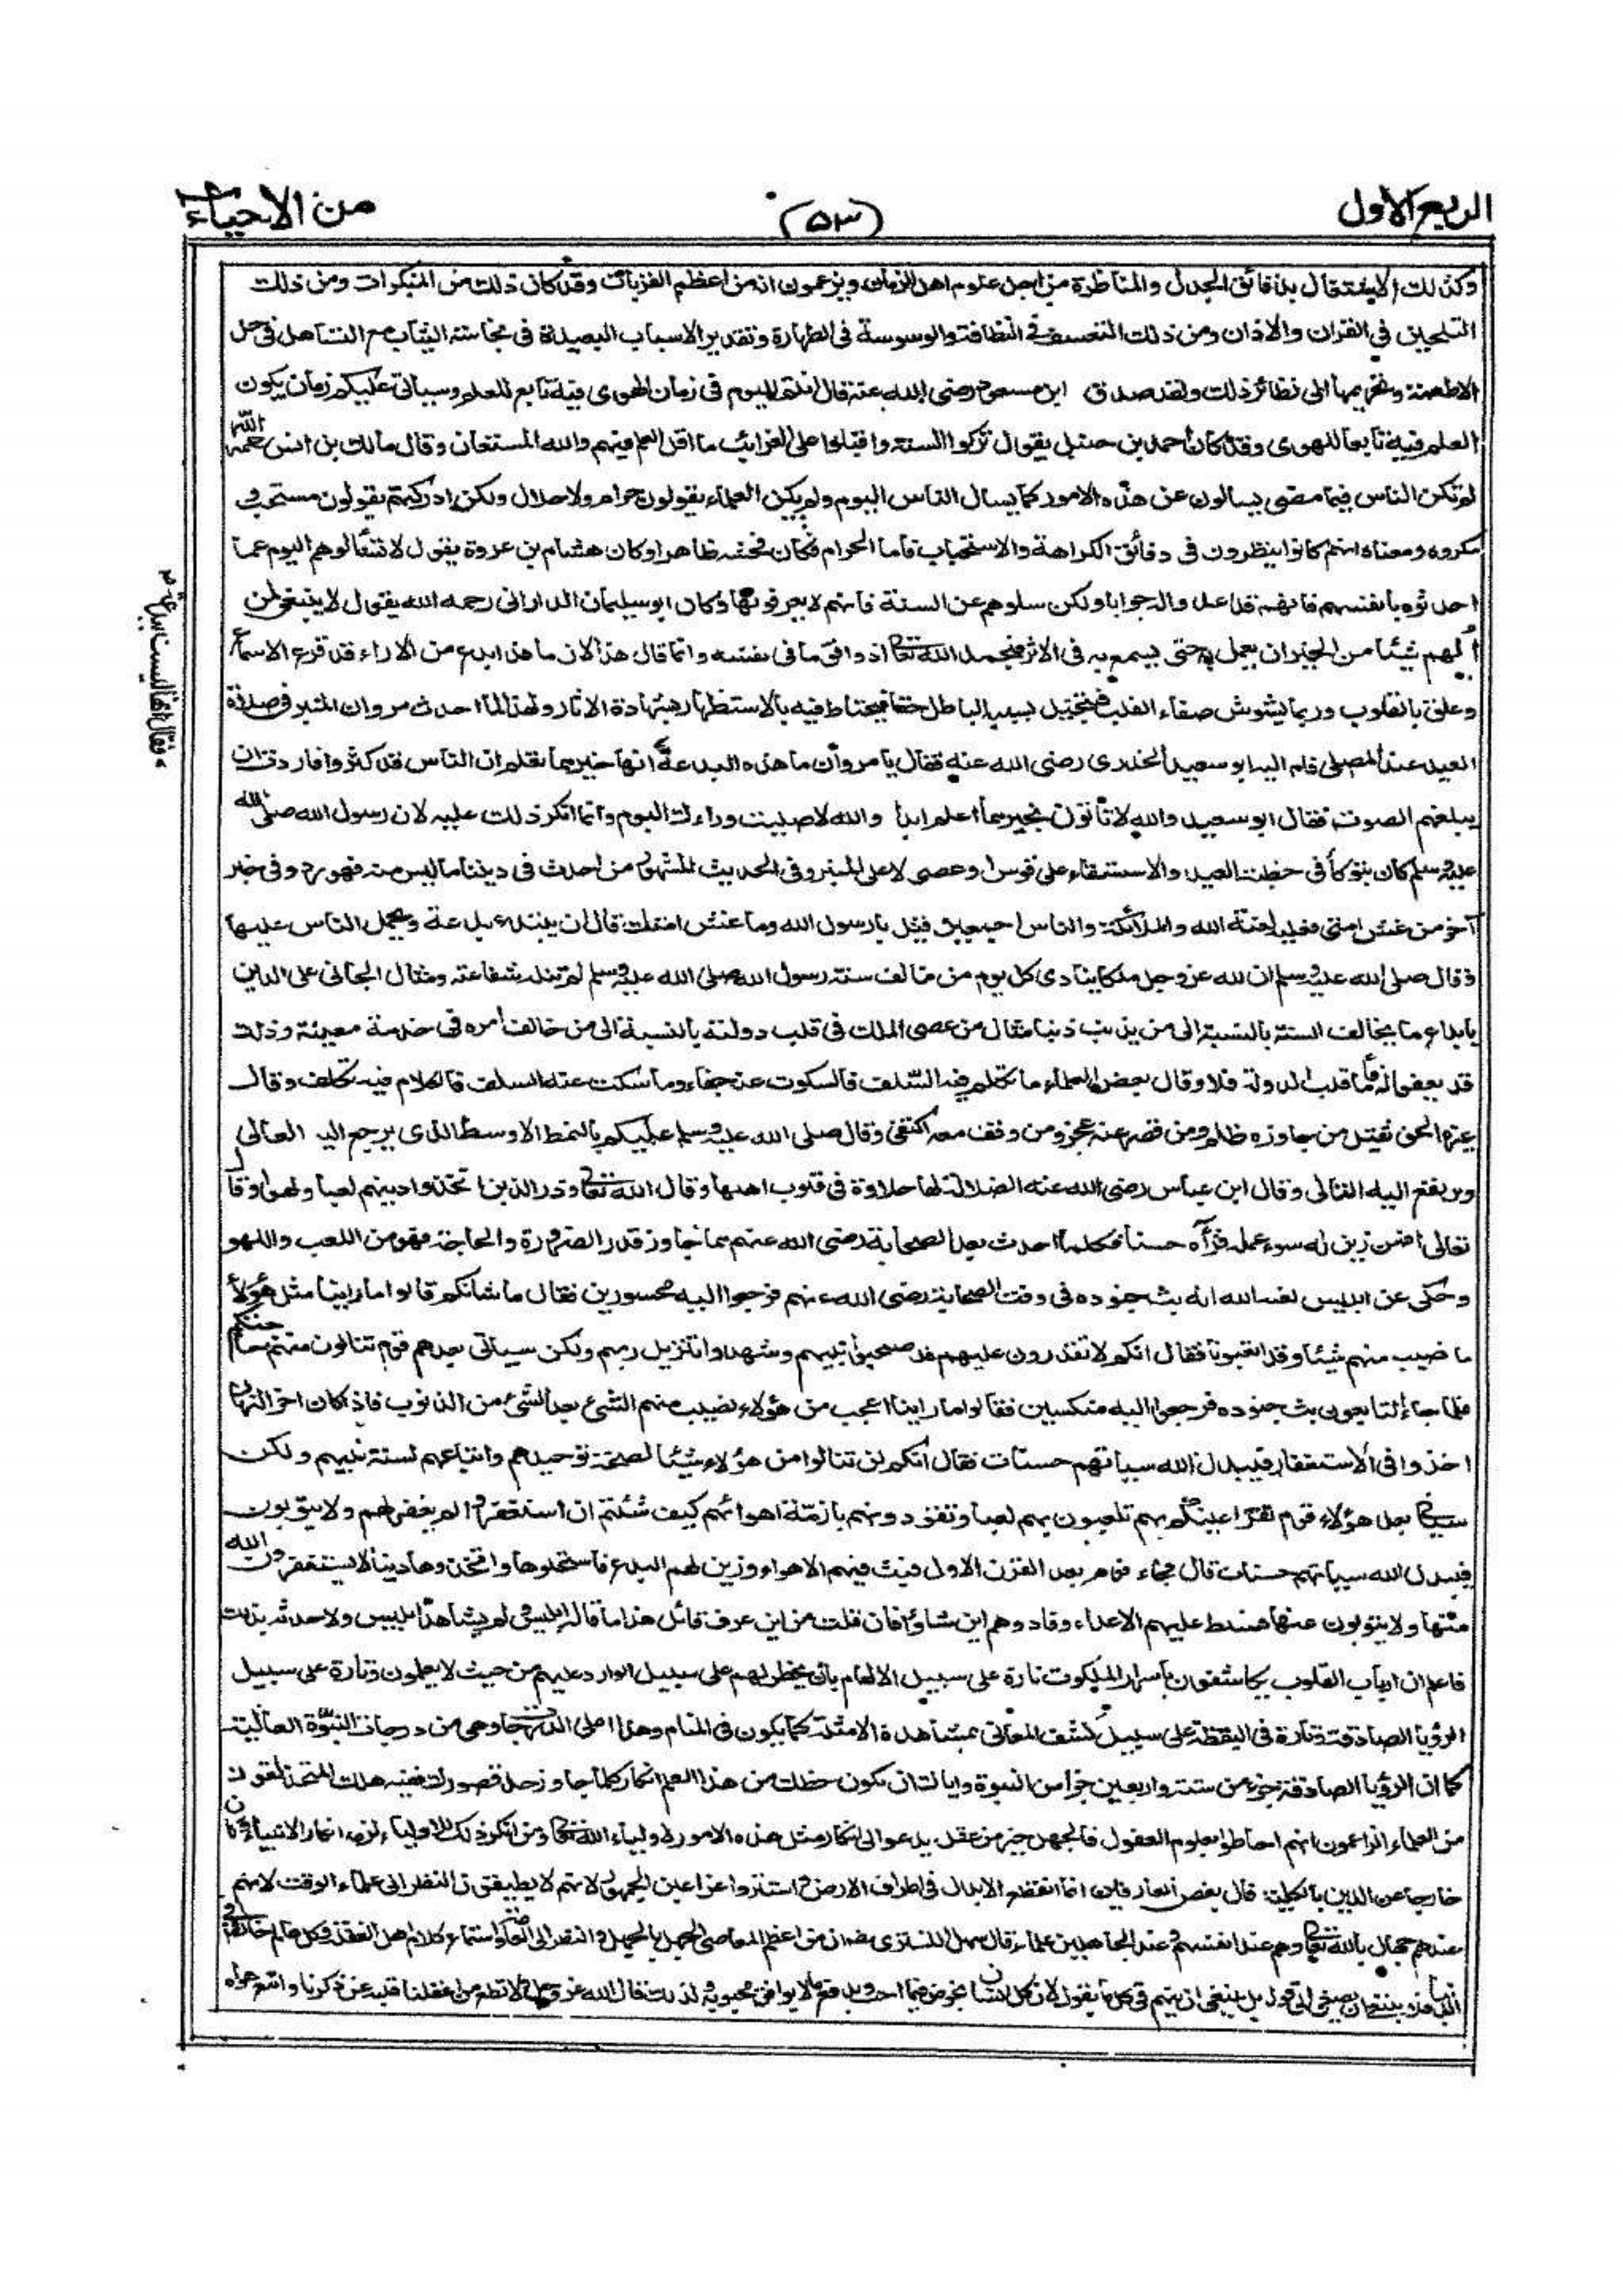 الربع الاول (٥٣) من الاحياء
وكذلك الاشتغال بدقائق الجدل والمناظرة من اجل علوم اهل الزمان ويزعمون انه من اعظم القربات وقد كان ذلك من المنكرات ومن ذلك
التلحين في القران والاذان ومن ذلك التعسف في النظافة والوسوسة في الطهارة وتقدير الاسباب البعيدة في نجاسة الثياب مع التساهل في حل
الاطعمة وتحريمها الى نظائر ذلك ولقد صدق ابن مسعود رضى الله عنه قال انتم اليوم في زمان الهوى فيه تابع للعلم وسياتى عليكم زمان يكون
العلم فيه تابعا للهوى وقد كان احمد بن حنبل يقول تركوا السنة واقبلوا على الغرائب ما اقل العلم فيهم والله المستعان وقال مالك بن انس رحمه الله
لم تكن الناس فيما مضى يسالون عن هذه الامور كما يسال الناس اليوم ولم يكن العلماء يقولون حرام ولا حلال ولكن ادركتهم يقولون مستحب و
مكروه ومعناه انهم كانوا ينظرون في دقائق الكراهة والاستحباب فاما الحرام فكان فحشه ظاهرا وكان هشام بن عروة يقول لا تسالوهم اليوم عما
احدثوه بانفسهم فانهم قد اعدوا له جوابا ولكن سلوهم عن السنة فانهم لا يعرفونها وكان ابو سليمان الدارانى رحمه الله يقول لا ينبغى لمن
الهم شيئا من الخير ان يعمل به حتى يسمع به في الاثر فيحمد الله تعالى اذ وافق ما في نفسه وانما قال هذا لان ما قد ابدع من الاراء قد قرع الاسماع
وعلق بالقلوب وربما يشوش صفاء القلب فيتخيل بسببه الباطل حقا فيحتاط فيه بالاستظهار بشهادة الاثار ولهذا لما احدث مروان المنبر في صلاة
العيد عند المصلى قام اليه ابو سعيد الخدرى رضى الله عنه فقال يا مروان ما هذه البدعة انها خير مما تعلم ان الناس قد كثروا فاردت ان
يبلغهم الصوت فقال ابو سعيد والله لا تاتون بخير مما اعلم ابدا والله لا صليت وراءك اليوم وانما انكر ذلك عليه لان رسول الله صلى الله
عليه وسلم كان يتوكأ في خطبة العيد والاستسقاء على قوس او عصى لا على المنبر وفى الحديث المشهور من احدث في ديننا ما ليس منه فهو رد وفى خبر
آخر من غش امتى فعليه لعنة الله والملائكة والناس اجمعين قيل يا رسول الله وما غش امتك قال ان يبتدع بدعة ويحمل الناس عليها
وقال صلى الله عليه وسلم ان لله عز وجل ملكا ينادى كل يوم من خالف سنة رسول الله صلى الله عليه وسلم لم تنله شفاعته ومثال الجانى على الدين
بابداع ما يخالف السنة بالنسبة الى من يذنب ذنبا مثال من عصى الملك في قلب دولته بالنسبة الى من خالف امره في خدمة معينة وذلك
قد يعفى له فاما قلب الدولة فلا وقال بعض العلماء ما تكلم فيه السلف فالسكوت عنه جفاء وما سكت عنه السلف فالكلام فيه تكلف وقال
غيره الحق ثقيل من جاوزه ظلم ومن قصر عنه عجز ومن وقف معه اكتفى وقال صلى الله عليه وسلم عليكم بالنمط الاوسط الذى يرجع اليه العالى
ويرتفع اليه التالى وقال ابن عباس رضى الله عنه الضلالة لها حلاوة في قلوب اهلها وقال الله تعالى وذر الذين اتخذوا دينهم لعبا ولهوا وقال
تعالى افمن زين له سوء عمله فرآه حسنا فكلما احدث بعد الصحابة رضى الله عنهم مما جاوز قدر الضرورة والحاجة فهو من اللعب واللهو
وحكى عن ابليس لعنه الله انه بث جنوده في وقت الصحابة رضى الله عنهم فرجعوا اليه محسورين فقال ما شانكم قالوا ما راينا مثل هؤلاء
ما نصيب منهم شيئا وقد اتعبونا فقال انكم لا تقدرون عليهم قد صحبوا نبيهم وشهدوا تنزيل ربهم ولكن سياتى بعدهم قوم تنالون منهم حاجتكم
فلما جاء التابعون بث جنوده فرجعوا اليه منكسين فقالوا ما راينا اعجب من هؤلاء نصيب منهم الشئ بعد الشئ من الذنوب فاذا كان اخر النهار
اخذوا في الاستغفار فيبدل الله سياتهم حسنات فقال انكم لن تنالوا من هؤلاء شيئا لصحة توحيدهم واتباعهم لسنة نبيهم ولكن
سياتى بعد هؤلاء قوم تقر اعينكم بهم تلعبون بهم لعبا وتقودونهم بازمة اهوائهم كيف شئتم ان استغفروا لم يغفر لهم ولا يتوبون
فيبدل الله سياتهم حسنات قال فجاء قوم بعد القرن الاول فبث فيهم الاهواء وزين لهم البدع فاستحلوها واتخذوها دينا لا يستغفرون الله
منها ولا يتوبون عنها فسلط عليهم الاعداء وقادوهم اين شاؤا فان قلت من اين عرف قائل هذا ما قاله ابليس ولم يشاهد ابليس ولا حدثه بذلك
فاعلم ان ارباب القلوب يكاشفون باسرار الملكوت تارة على سبيل الالهام بان يخطر لهم على سبيل الوارد عليهم من حيث لا يعلمون وتارة على سبيل
الرؤيا الصادقة وتارة في اليقظة على سبيل كشف المعانى بمشاهدة الامثلة كما يكون في المنام وهذا اعلى الدرجات وهى من درجات النبوة العالية
كما ان الرؤيا الصادقة جزء من ستة واربعين جزأ من النبوة واياك ان يكون حظك من هذا العلم انكار كلما جاوز حد قصورك ففيه هلك المتحذلقون
من العلماء الزاعمون انهم احاطوا بعلوم العقول فالجهل خير من عقل يدعو الى انكار مثل هذه الامور لاولياء الله تعالى ومن انكر ذلك للاولياء لزمه انكار الانبياء وكان
خارجا عن الدين بالكلية قال بعض العارفين انما انقطع الابدال في اطراف الارض واستتروا عن اعين الجمهور لانهم لا يطيقون النظر الى علماء الوقت لانهم
عندهم جهال بالله تعالى وهم عند انفسهم وعند الجاهلين علماء قال سهل التسترى رضه ان من اعظم المعاصى الجهل بالجهل والنظر الى العامة واستماع كلام اهل الغفلة وكل عالم خاض في
الدنيا فلا ينبغى ان يصغى الى قوله بل ينبغى ان يتهم في كل ما يقول لان كل انسان يخوض فيما احب ويدفع ما لا يوافق محبوبه ولذلك قال الله عز وجل ولا تطع من اغفلنا قلبه عن ذكرنا واتبع هواه